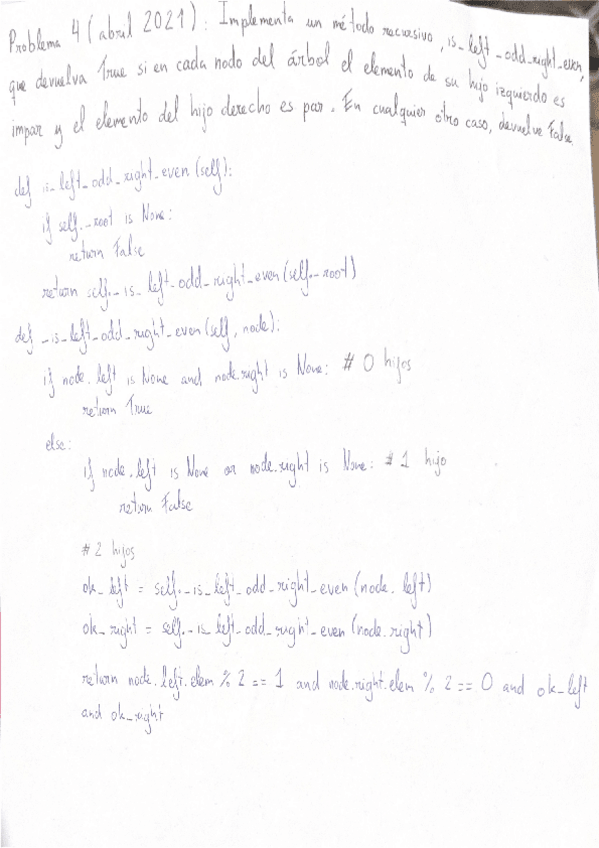 Problema 4 (abril 2021): Implementa un método recursivo, is_left_odd_right_even,
que devuelva True si en cada nodo del árbol el elemento de su hijo izquierdo es
impar y el elemento del hijo derecho es par. En cualquier otro caso, devuelve False
def is_left_odd_right_even (self):
if self._root is None:
return False
return self._is_left_odd_right_even (self._root)
def _is_left_odd_right_even (self, node):
if node.left is None and node.right is None: # 0 hijos
return True
else:
if node.left is None or node.right is None: # 1 hijo
return False
# 2 hijos
ok_left = self._is_left_odd_right_even (node.left)
ok_right = self._is_left_odd_right_even (node.right)
return node.left.elem % 2 == 1 and node.right.elem % 2 == 0 and ok_left
and ok_right